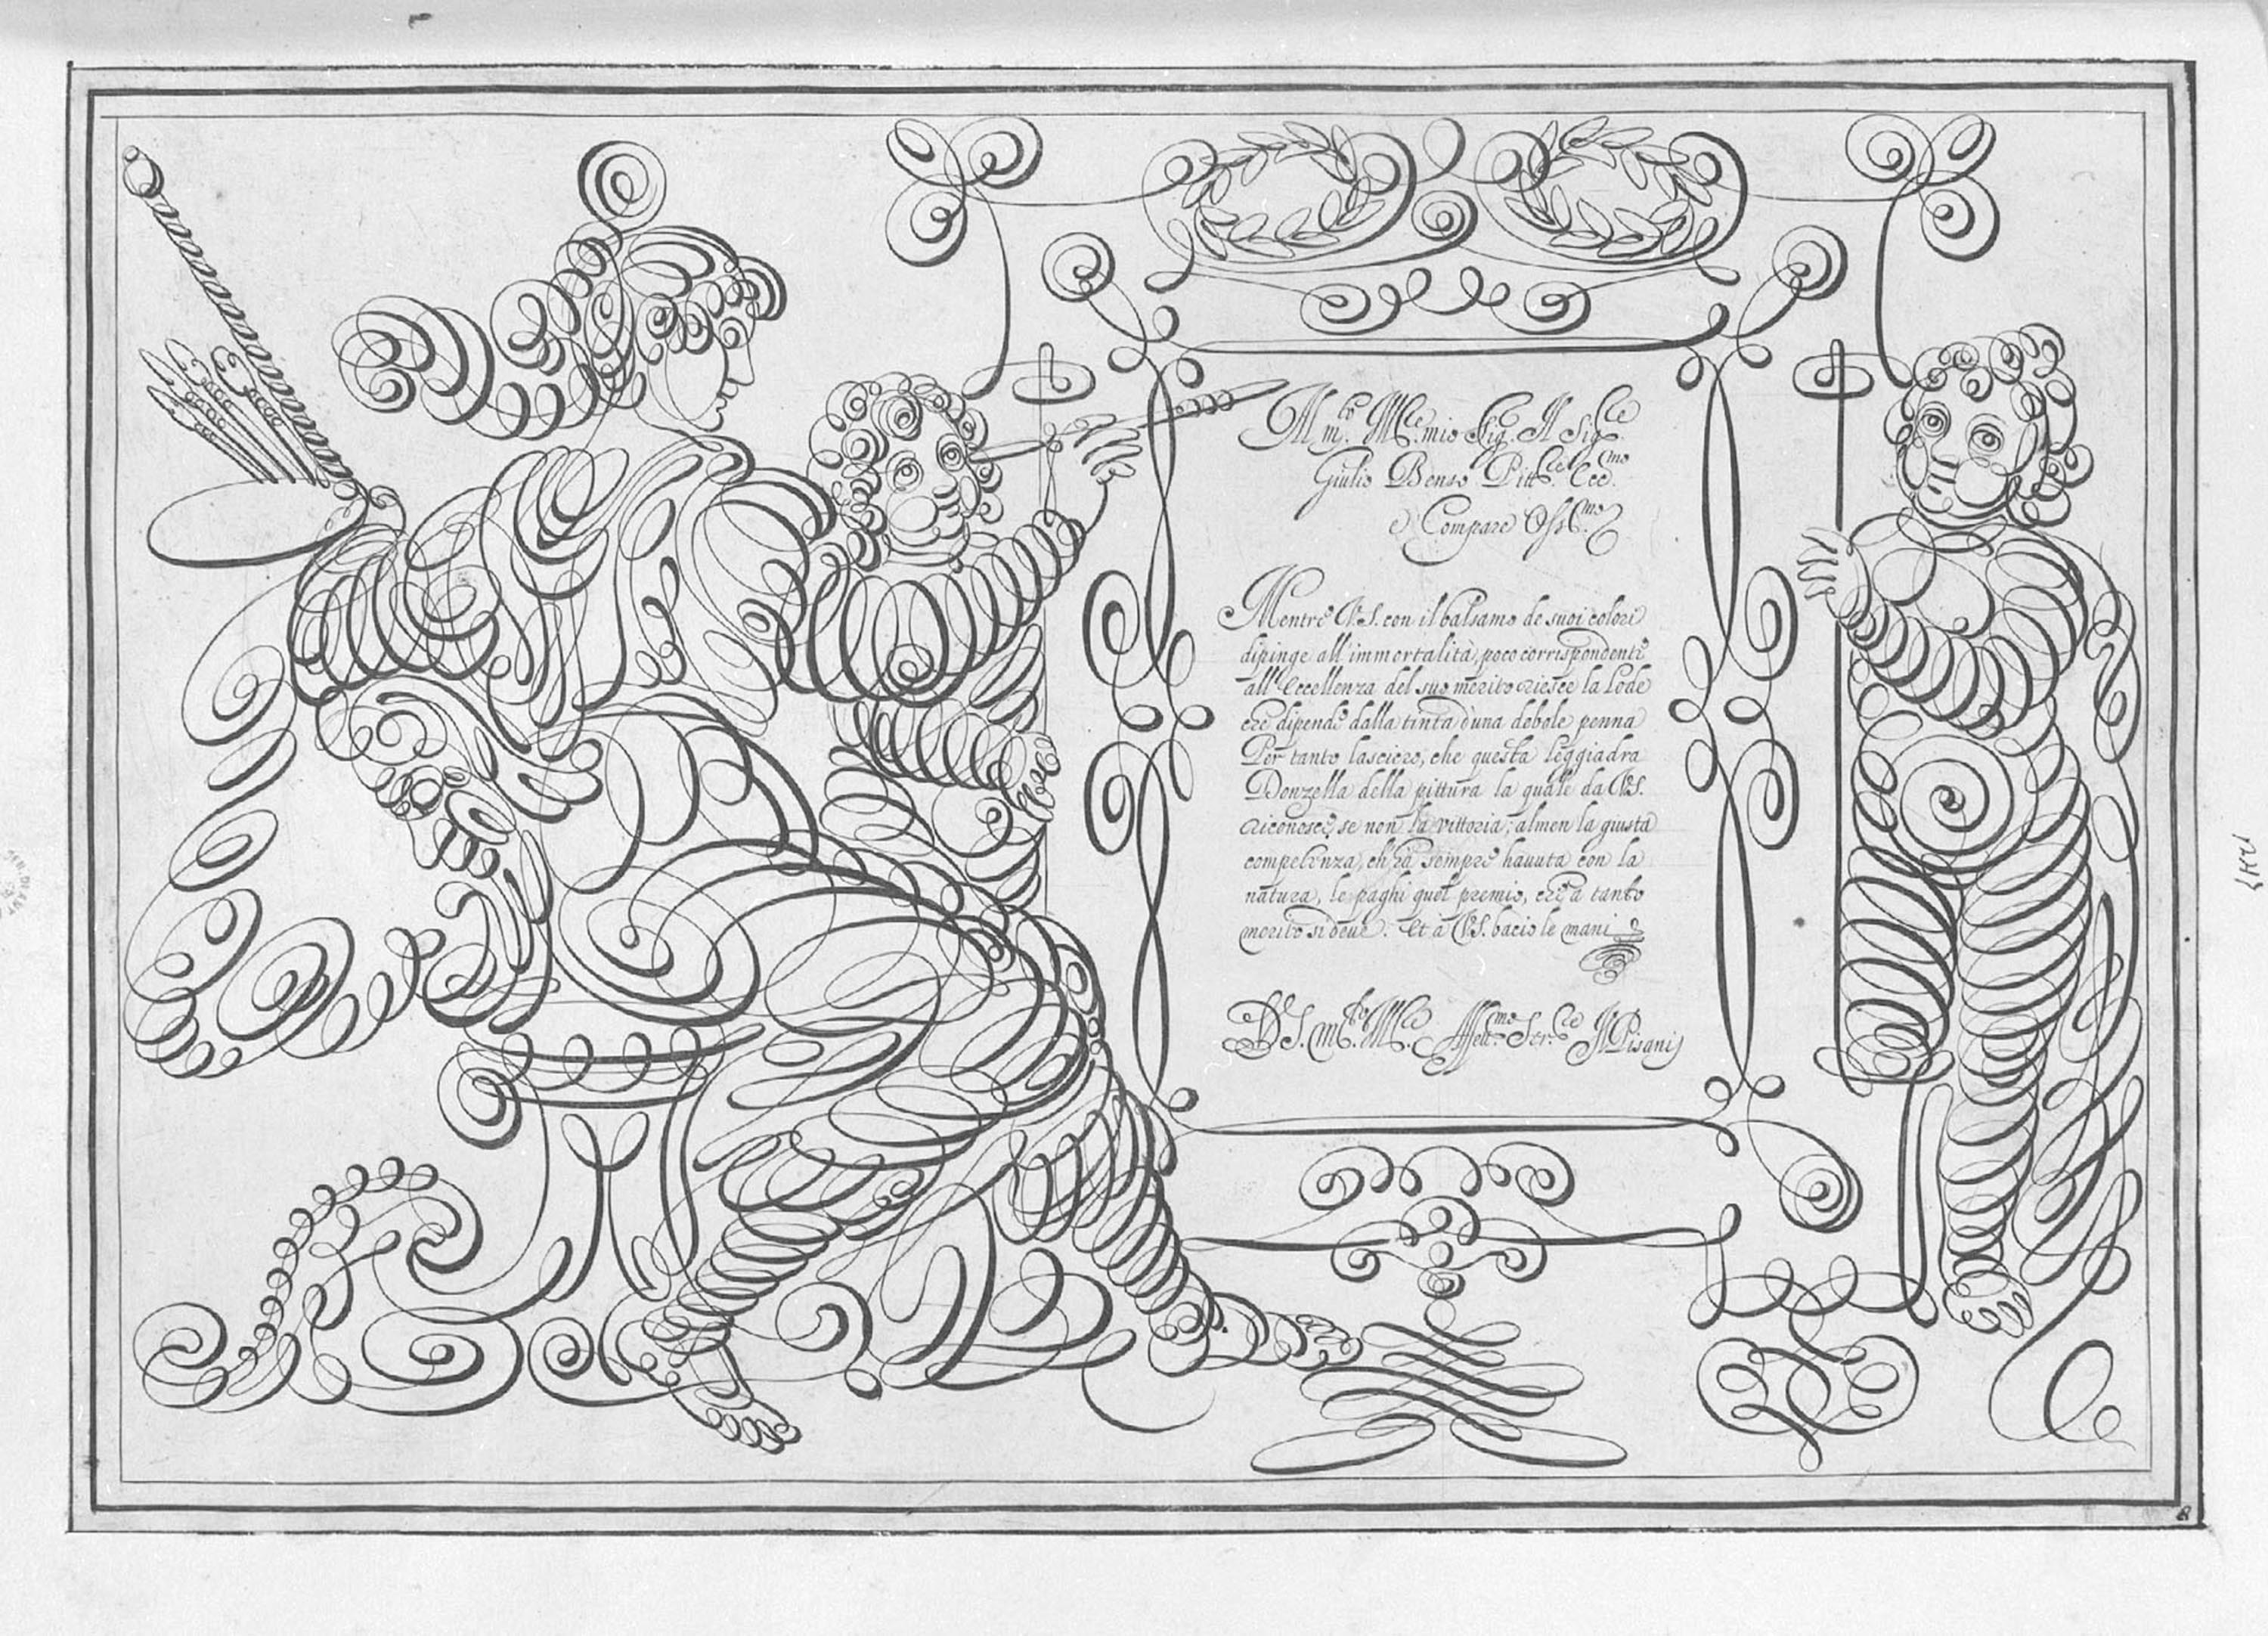 M.to M.ce mio Sig.r Il Sig.re
Giulio Benso Pitt.re Ecc.mo
e Compare Oss.mo
Mentre V.S. con il balsamo de suoi colori
dipinge all'immortalità, poco corrispondente
all'Eccellenza del suo merito riesce la Lode
che dipende dalla tinta d'una debole penna
Per tanto lasciero, che questa leggiadra
Donzella della pittura la quale da V.S.
riconosce, se non la vittoria, almen la giusta
competenza, ch'hà sempre hauuta con la
natura, le paghi quel premio, che a tanto
merito si deue. Et à V.S. bacio le mani
D V.S. m.to M.ce Aff.mo Ser.re Il Pisani
8